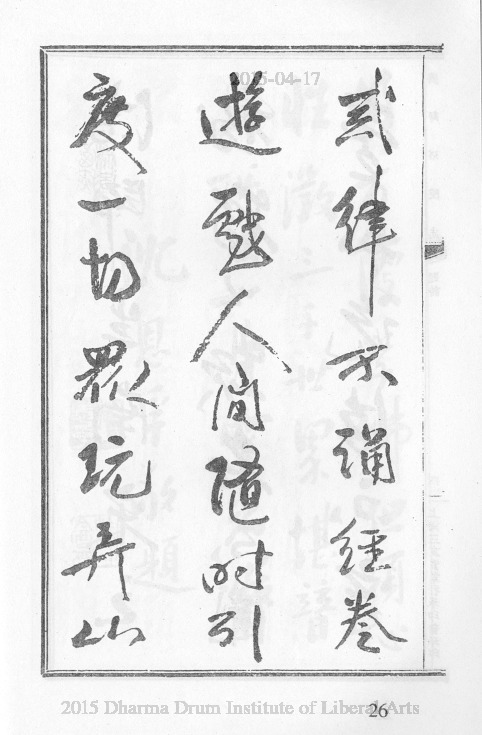 2015-04-17
戒律不誦經卷
遊戲人間隨時引
度一切眾玩弄山
2015 Dharma Drum Institute of Liberal Arts
26